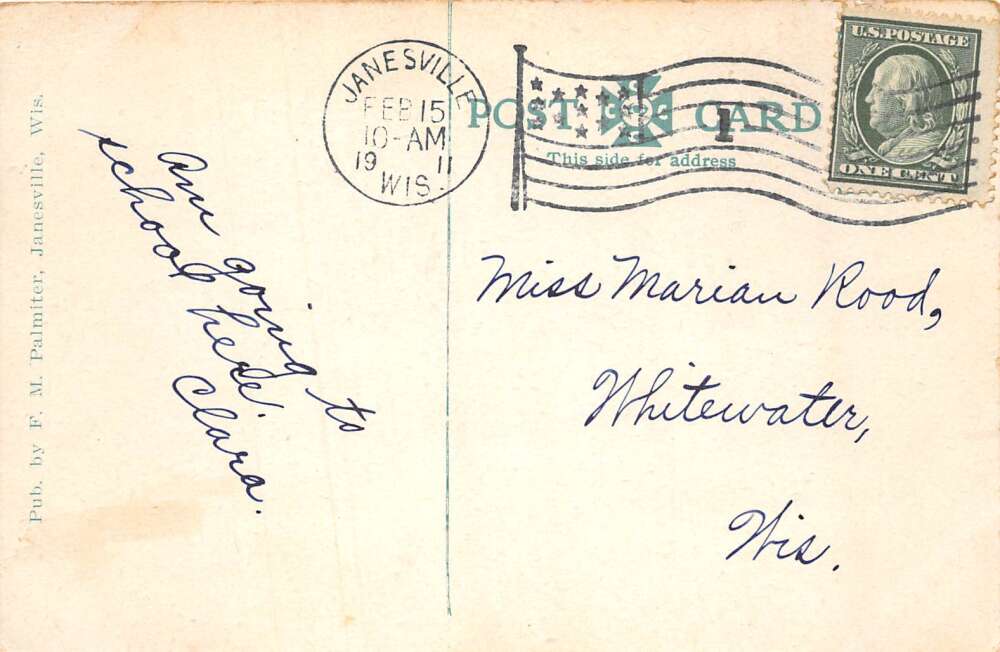 Pub. by F. M. Palmiter, Janesville, Wis.
Am going to
school here.
Clara.
JANESVILLE
FEB 15
10-AM
19 11
WIS.
POST CARD
1
This side for address
U.S. POSTAGE
ONE CENT
Miss Marian Rood,
Whitewater,
Wis.